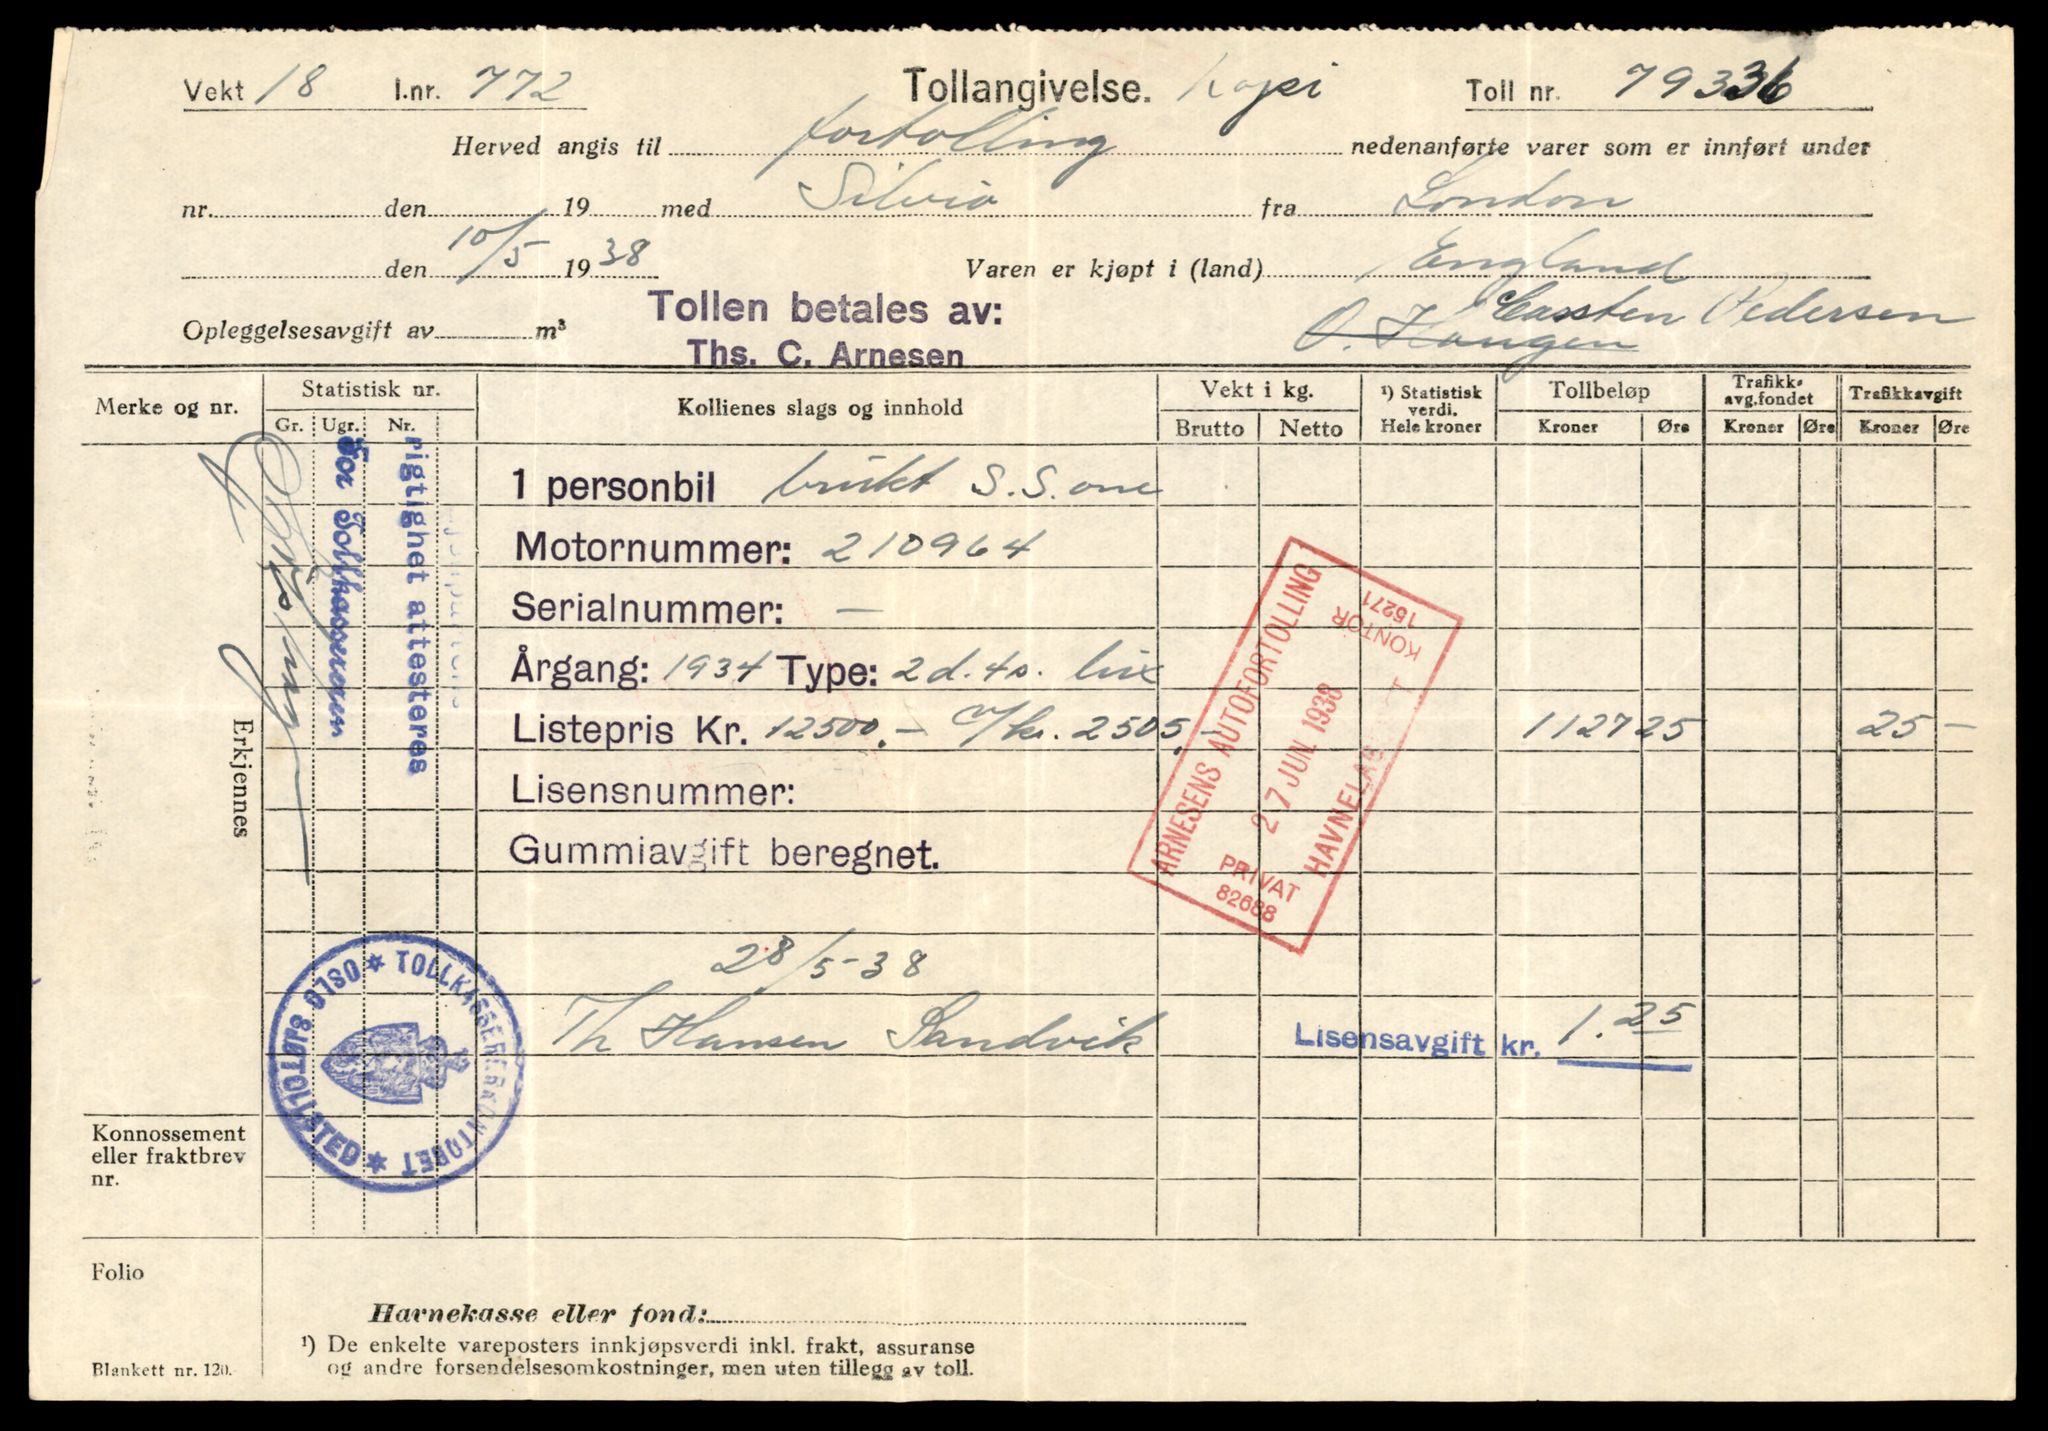 Vekt 18 l.nr. 772 Tollangivelse. Kopi Toll nr. 79336
Herved angis til fortolling nedenanførte varer som er innført under
nr. den 19 med Silvia fra London
den 10/5 1938 Varen er kjøpt i (land) England
Tollen betales av: Carsten Pedersen
Opleggelsesavgift av m³ Ths. C. Arnesen O. Haugen
Merke og nr. Statistisk nr. Kollienes slags og innhold Vekt i kg. ¹) Statistisk verdi. Hele kroner Tollbeløp Trafikkavg.fondet Trafikkavgift
Gr. Ugr. Nr. Brutto Netto Kroner Øre Kroner Øre Kroner Øre
1 personbil brukt S.S. one
Motornummer: 210964
Serialnummer: —
Årgang: 1934 Type: 2 d. 4s. lux
Listepris Kr. 12500.- v/kr. 2505.- 1127 25 25 —
Lisensnummer:
Gummiavgift beregnet.
Erkjennes
rigtighet attesteres
For Tollkassereren
ARNESENS AUTOFORTOLLING
KONTOR
15271
27 JUN 1938
PRIVAT
82688
28/5-38
Th Hansen Sandvik
Lisensavgift kr. 1.25
OSLO TOLLSTED
TOLLKASSERERKONTORET
Konnossement
eller fraktbrev
nr.
Folio
Havnekasse eller fond:
¹) De enkelte vareposters innkjøpsverdi inkl. frakt, assuranse
og andre forsendelsesomkostninger, men uten tillegg av toll.
Blankett nr. 120.